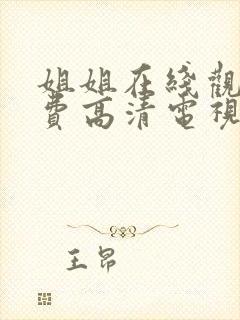 姐姐在綫觀
費高清電視
王昂